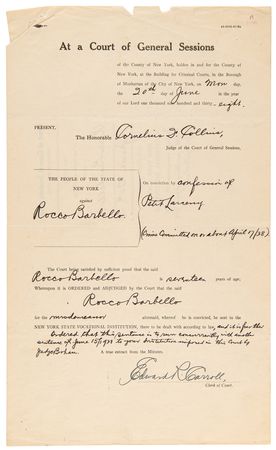 At a Court of General Sessions
of the County of New York, holden in and for the County of
New York, at the Building for Criminal Courts, in the Borough
of Manhattan of the City of New York, on Mon day,
the 20th day of June in the year
of our Lord one thousand nine hundred and thirty-eight.
PRESENT,
The Honorable Cornelius F. Collins,
Judge of the Court of General Sessions.
THE PEOPLE OF THE STATE OF
NEW YORK
against
Rocco Barbello.
On conviction by confession of
Petit Larceny
(Crime Committed on or about April 07/38)
The Court being satisfied by sufficient proof that the said
Rocco Barbello is seventeen years of age;
Whereupon it is ORDERED and ADJUDGED by the Court that the said
Rocco Barbello
for the misdemeanor aforesaid, whereof he is convicted, be sent to the
NEW YORK STATE VOCATIONAL INSTITUTION, there to be dealt with according to law, and it is further
Ordered that this sentence is to run concurrently with another
sentence of June 15/1938 to your Institution imposed in this Court by
Judge Bohan.
A true extract from the Minutes.
Edward R. Carroll
Clerk of Court.